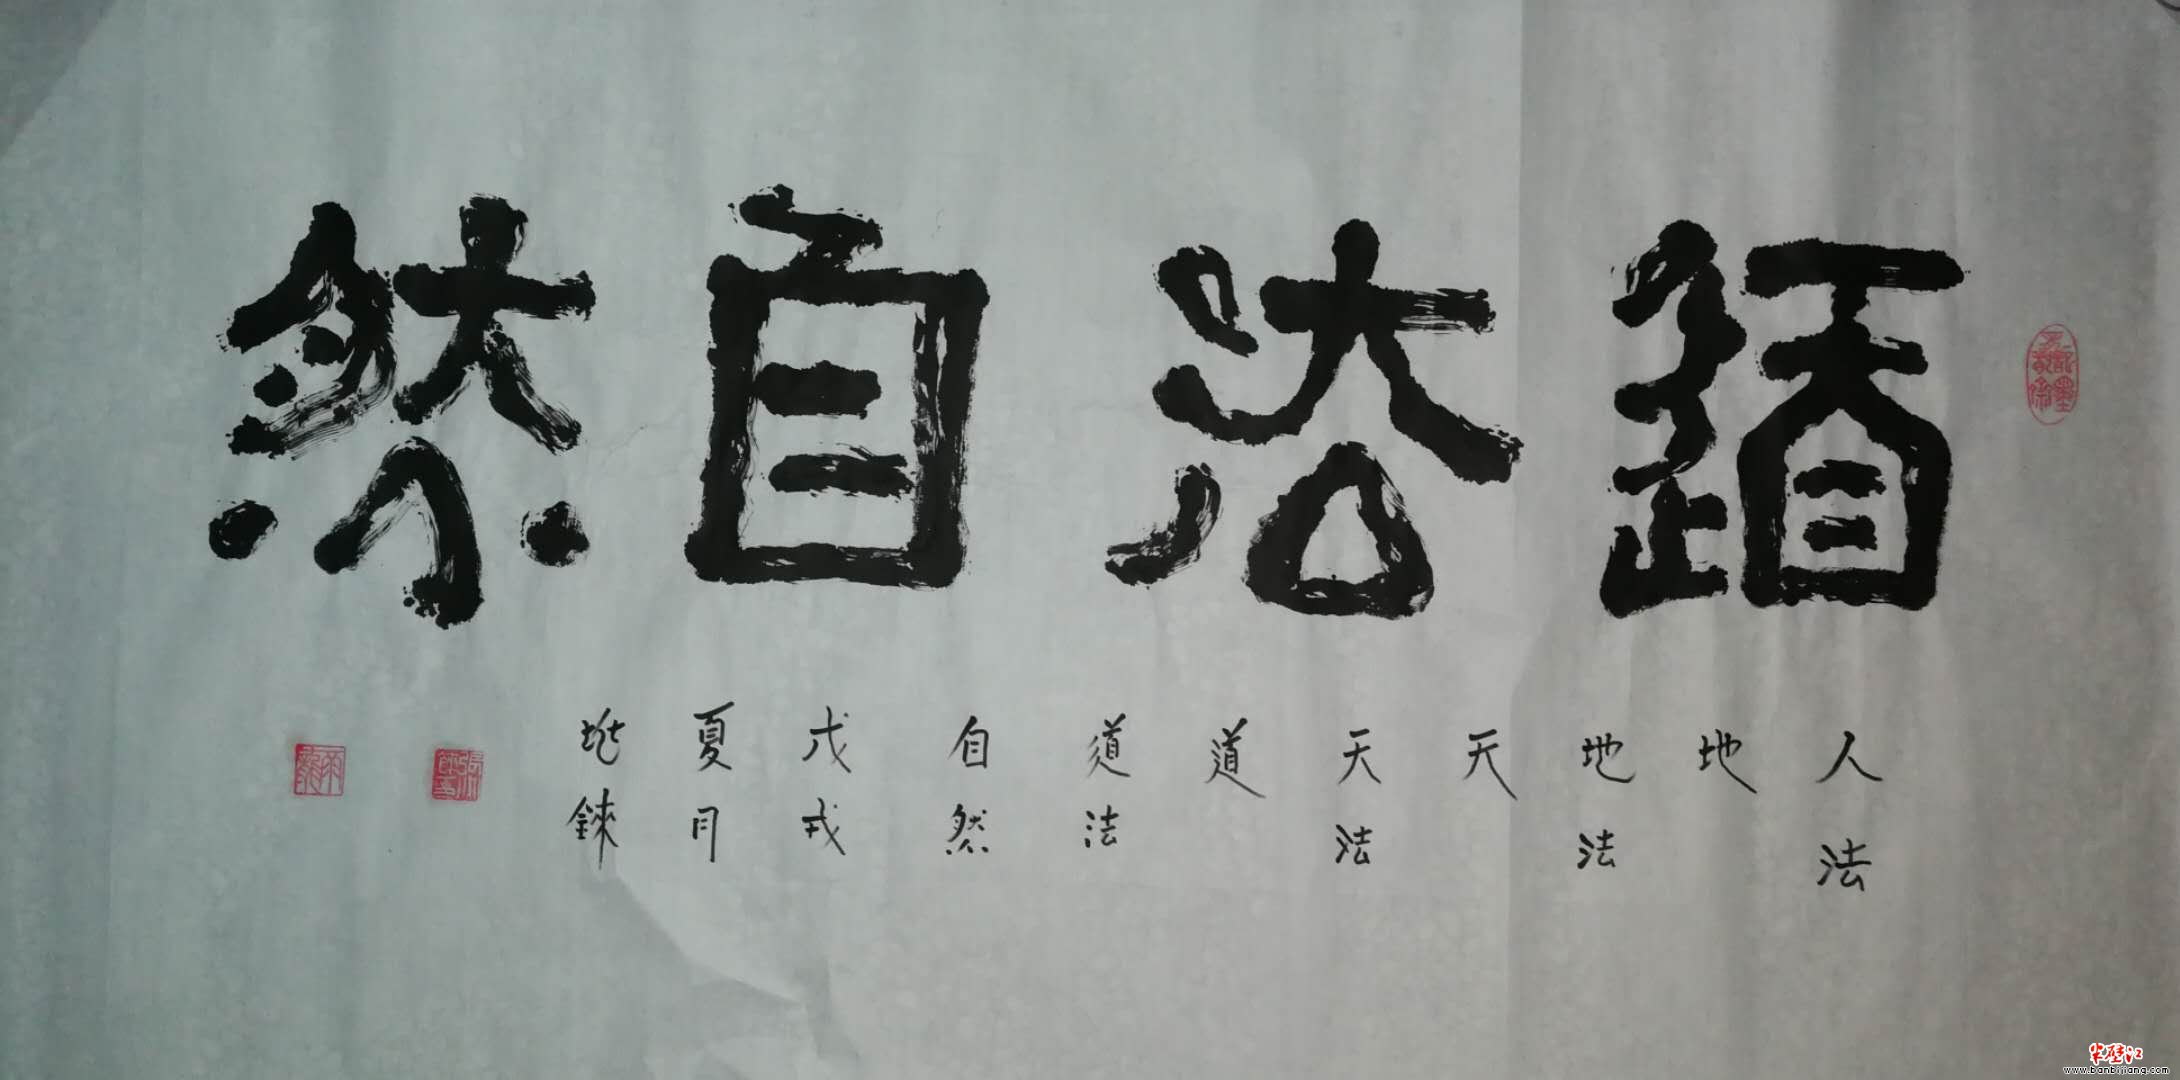 道法自然
人法
地
地法
天
天法
道
道法
自然
戊戌
夏月
半壁江
www.banbijiang.com